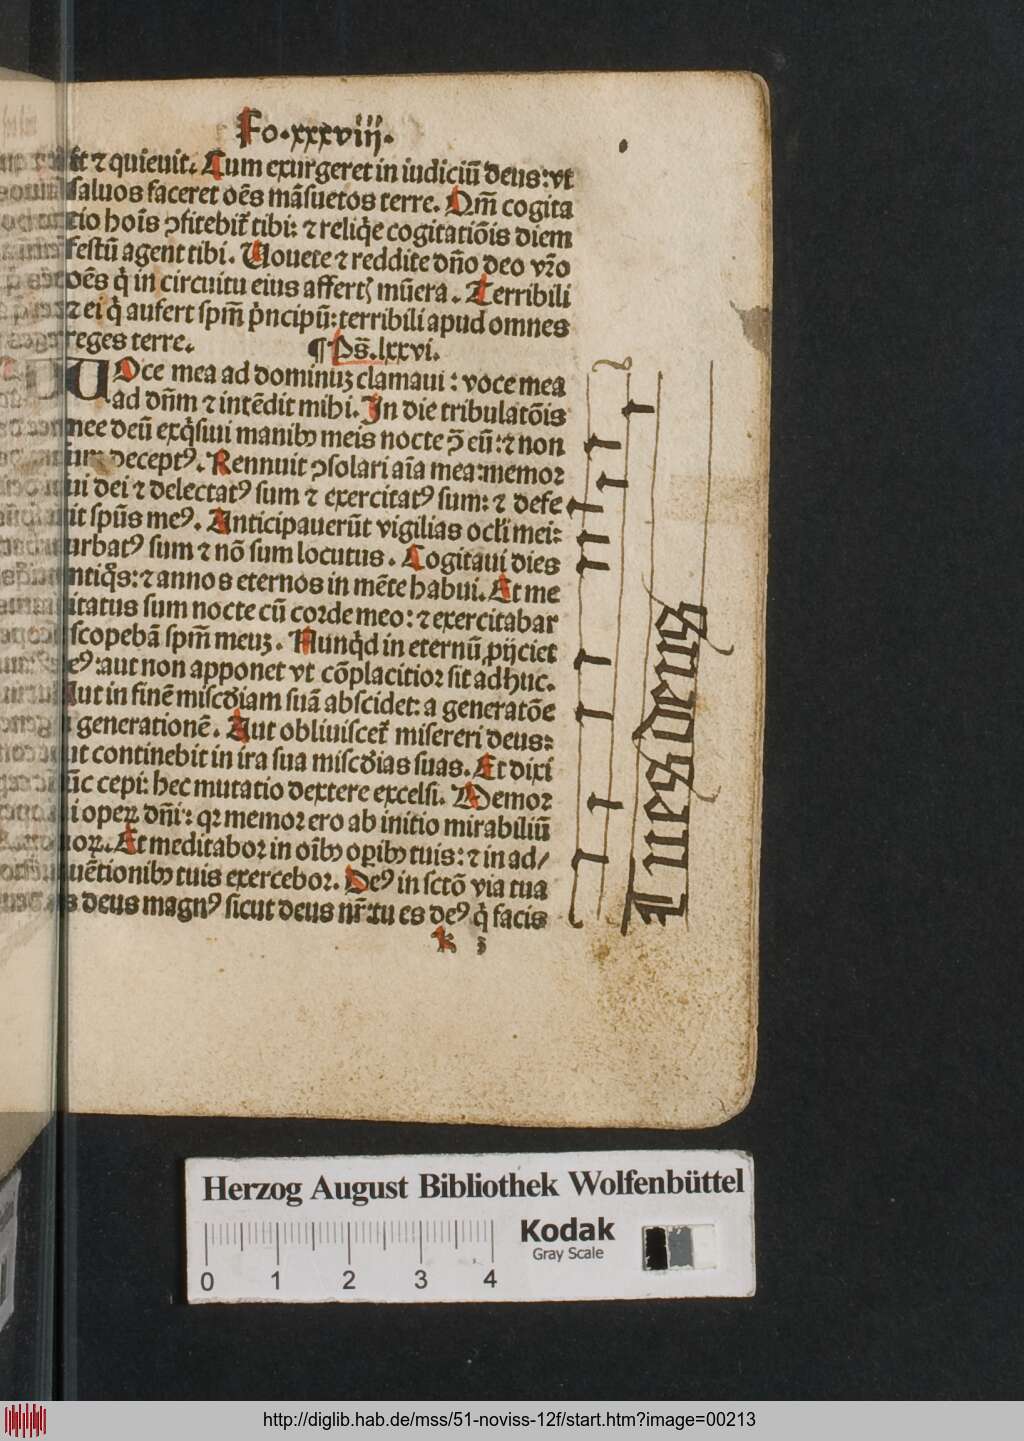 Fo.xxxviij.
et ⁊ quieuit. Cum exurgeret in iudiciū deus: vt
saluos faceret oēs māsuetos terre. Qm̄ cogita
tio hoīs ꝯfitebit᷑ tibi: ⁊ reliq̄e cogitatiōis diem
festū agent tibi. Uouete ⁊ reddite dn̄o deo vr̄o
oēs q̇ in circuitu eius affertꝭ mūera. Terribili
⁊ ei q̇ aufert spm̄ pͥncipū: terribili apud omnes
reges terre. ¶ Ps̄.lxxvi.
UOce mea ad dominuꝫ clamaui: voce mea
ad dn̄m ⁊ intēdit mihi. In die tribulatōis
mee deū exq̇siui manibꝰ meis nocte ꝯ̄ eū: ⁊ non
sum deceptꝰ. Rennuit ꝯsolari aīa mea: memoꝛ
ui dei ⁊ delectatꝰ sum ⁊ exercitatꝰ sum: ⁊ defe
it spūs meꝰ. Anticipauerūt vigilias ocl̄i mei:
urbatꝰ sum ⁊ nō sum locutus. Cogitaui dies
ntiq̄s: ⁊ annos eternos in mēte habui. Et me
itatus sum nocte cū coꝛde meo: ⁊ exercitabar
scopebā spm̄ meuꝫ. Nunqͥd in eternū ꝓijciet
eꝰ: aut non apponet vt cōplacitioꝛ sit adhuc.
Aut in finē misc̄diam suā abscidet: a generatōe
generationē. Aut obliuiscet᷑ misereri deus:
ut continebit in ira sua misc̄dias suas. Et dixi
ūc cepi: hec mutatio dextere excelsi. Memoꝛ
i operꝝ dn̄i: qꝛ memoꝛ ero ab initio mirabiliū
uoꝝ. Et meditaboꝛ in oībꝰ oꝑibꝰ tuis: ⁊ in ad/
uētionibꝰ tuis exerceboꝛ. Deꝰ in sctō via tua
s deus magnꝰ sicut deus nr̄: tu es deꝰ q̇ facis
k 3
Herzog August Bibliothek Wolfenbüttel
0 1 2 3 4
Kodak
Gray Scale
http://diglib.hab.de/mss/51-noviss-12f/start.htm?image=00213